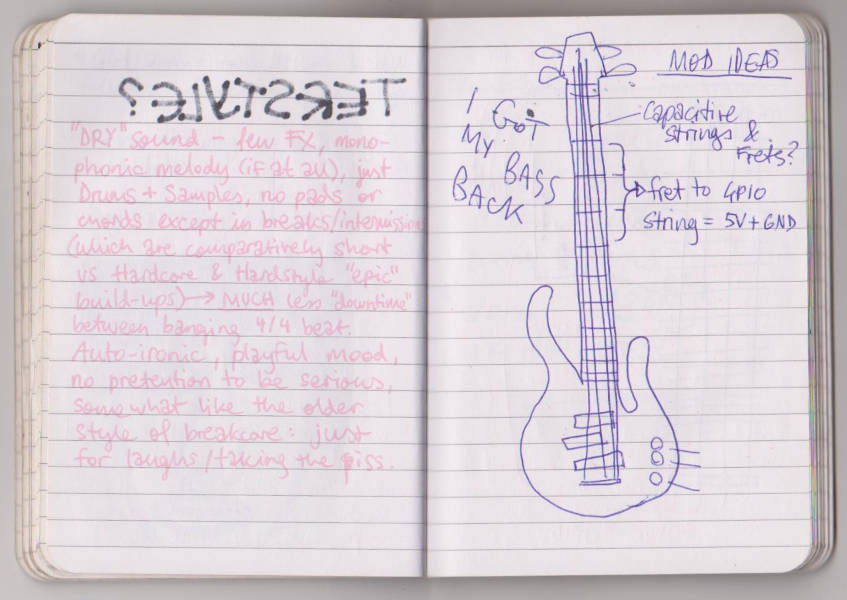 TEKSTYLE?
"DRY" sound – few FX, mono-
phonic melody (if at all), just
Drums + Samples, no pads or
chords except in breaks/intermissions
(which are comparatively short
vs Hardcore & Hardstyle "epic"
build-ups) → MUCH less "downtime"
between banging 4/4 beat.
Auto-ironic, playful mood,
no pretention to be serious,
somewhat like the older
style of breakcore: just
for laughs/taking the piss.
MOD IDEAS
I GOT
MY BASS
BACK
Capacitive
strings &
Frets?
fret to GPIO
string = 5V + GND